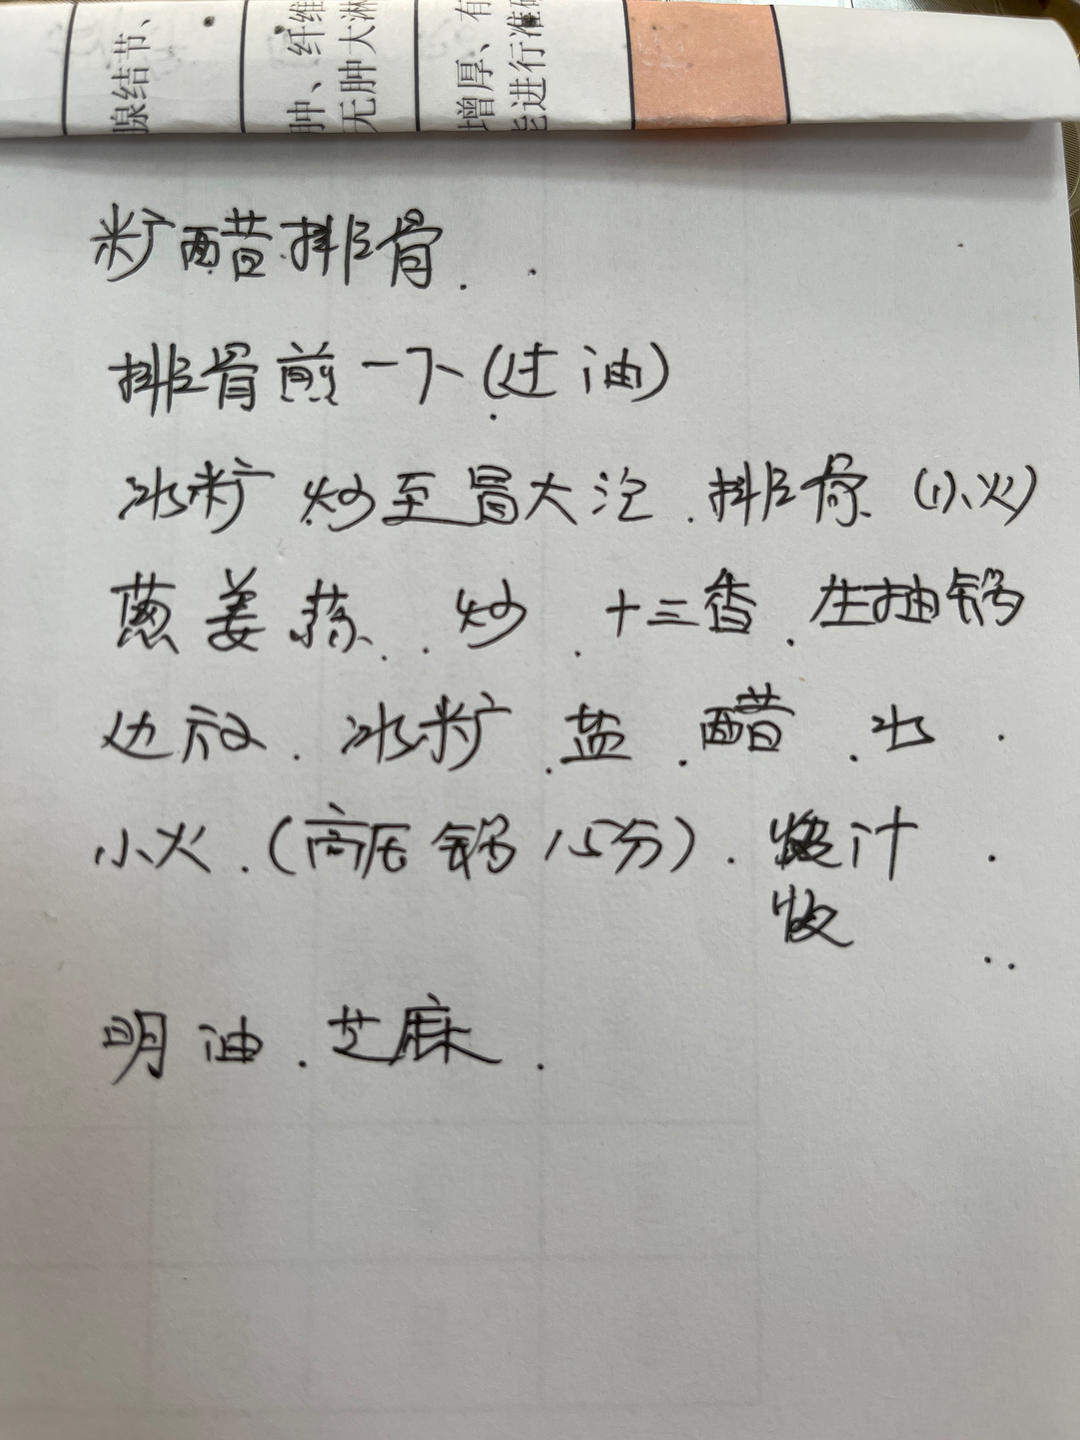 腺结节、
肿、纤维
无肿大淋
增厚、有
进行准确
粆醋排骨.
排骨煎一下(过油)
冰粆 炒至冒大泡.排骨(小火)
葱姜蒜..炒.十三香.生抽锅
边放.冰粆.盐.醋.水.
小火.(高压锅15分).汁.
收
明油.芝麻.